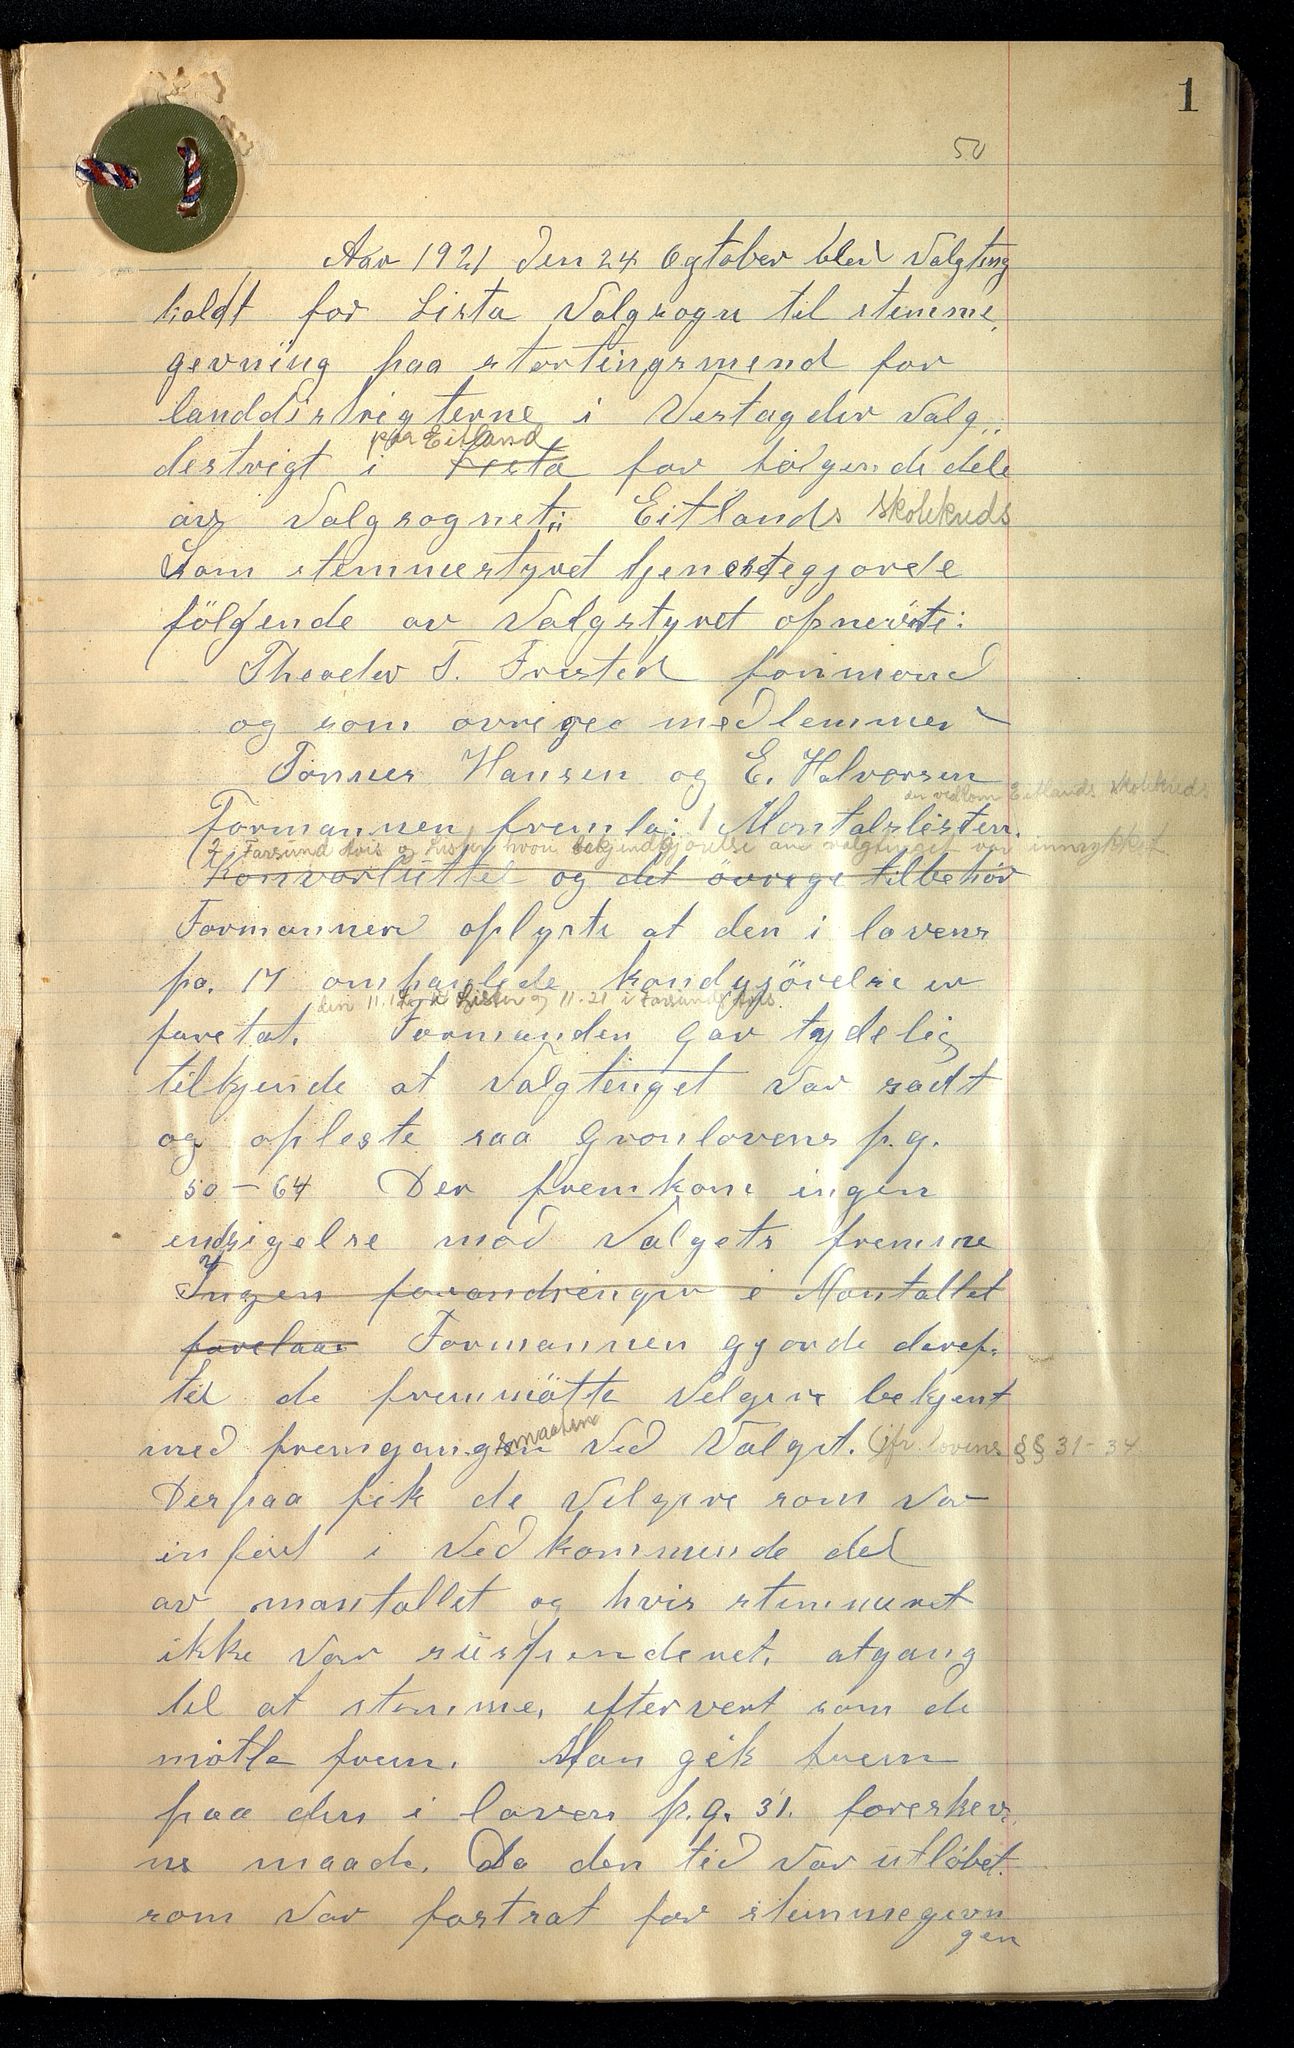 1
50
Aar 1921 den 24 Ogtober blev Valgting
holdt for Lista Valgsogn til stemme,
gevning paa stortingsmend for
landdistrigterne i Vestagder Valg„
paa Eitland
destrigt i Lista for følgende dele
av Valgsognet: Eitlands skolekreds
Som stemmestyret tjenestegjorde
följende av Valgstyret opnevnte:
Theodor T. Frested formand
og som øvrige medlemmer
Tønnes Hansen og E. Halvorsen
den vedkom Eitlands skolekreds
Formannen fremla: 1 Mantalslisten.
2. Farsund Avis og Lister hvori bekjendtgjørelse om valgtinget var innrykket
Konvorluttel og det övrege tilbehör
Formannen oplyste at den i lovens
pa. 17 omhanlede kondgjörelse er
den 11. i Lister og 11-21 i Farsunds Avis
foretat. Formanden gav tydelig
tilkjende at Valgtinget var sadt
og opleste saa Gronlovens p.g.
50 - 64 Der fremkom ingen
endsigelse mod Valgets fremme
Ingen forandringer i Mantallet
forelaa Formannen gjorde deref.
ter de fremmötte Velgere bekjent
smaaten
med fremgangen Ved Valget. (jfr. lovens §§ 31 - 34
Derpaa fik de Velgere som var
inført i Vedkommende del
av mantallet og hvis stemmeret
ikke var suspenderet. atgang
til at stemme, eftervert som de
møtte frem. Man gik frem
paa den i loven p.g. 31. foreskev.
ne maade. Da den tid var utlöbet.
som var fastsat for stemmegevn
gen